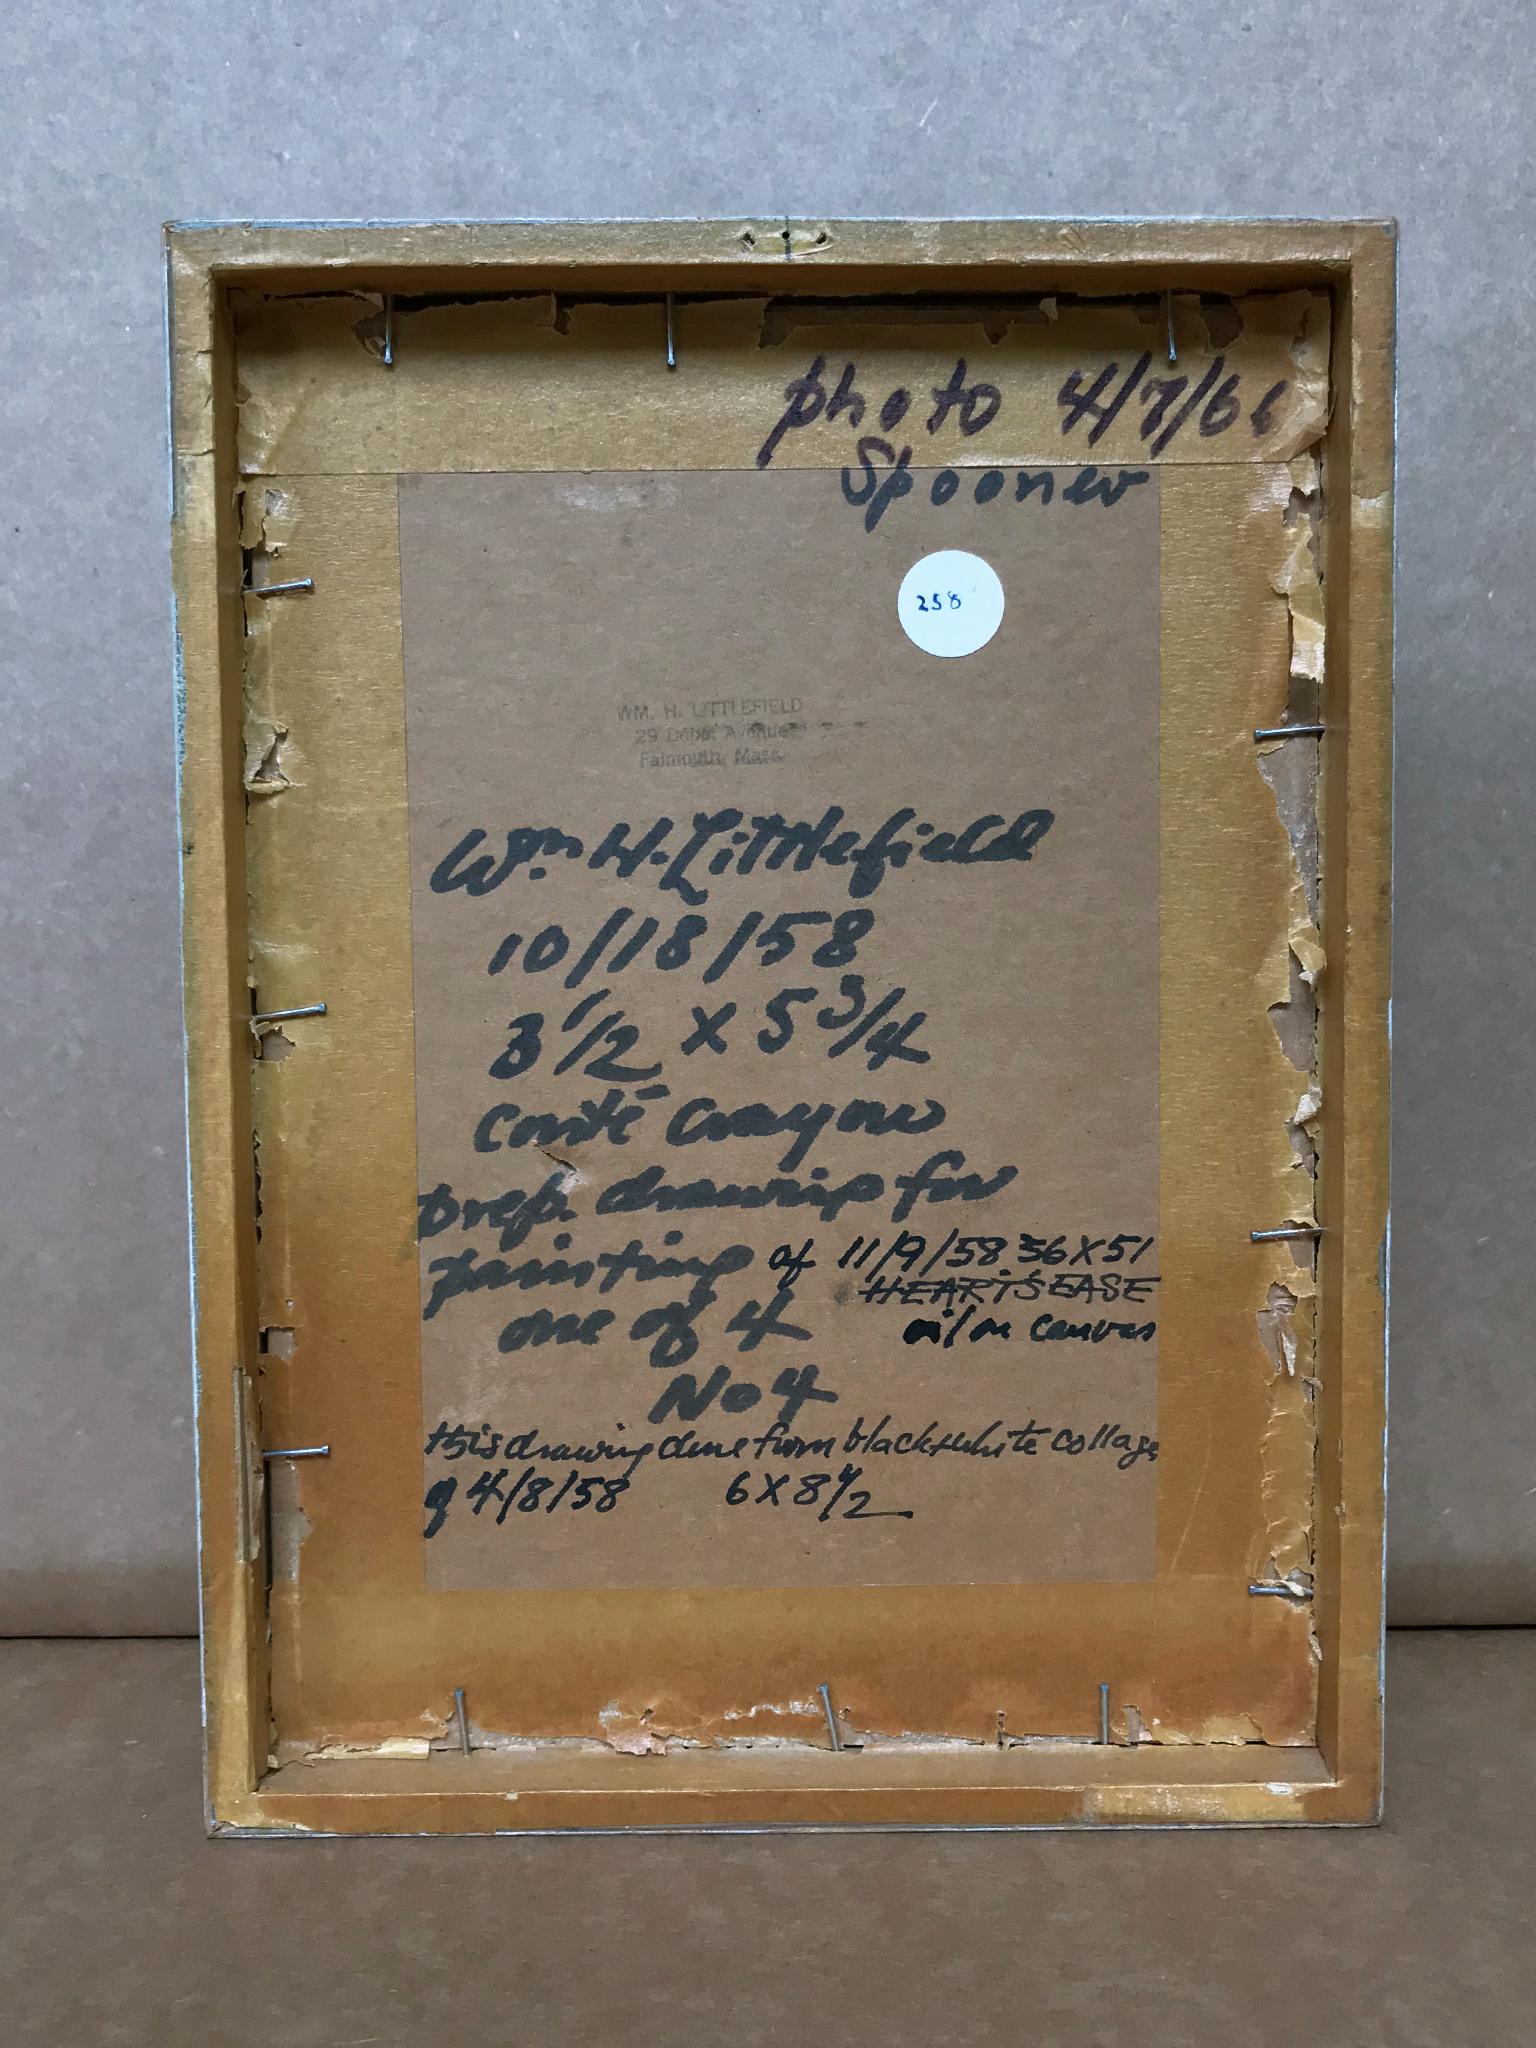 photo 4/7/66
Spooner
258
WM. H. LITTLEFIELD
29 Avenue
Falmouth, Mass.
Wm H. Littlefield
10/18/58
3 1/2 x 5 3/4
conté crayon
prep. drawing for
painting of 11/9/58 36X51
HEART'S EASE
one of 4 oil on canvas
No 4
this drawing done from black+white collage
of 4/8/58 6X8 1/2